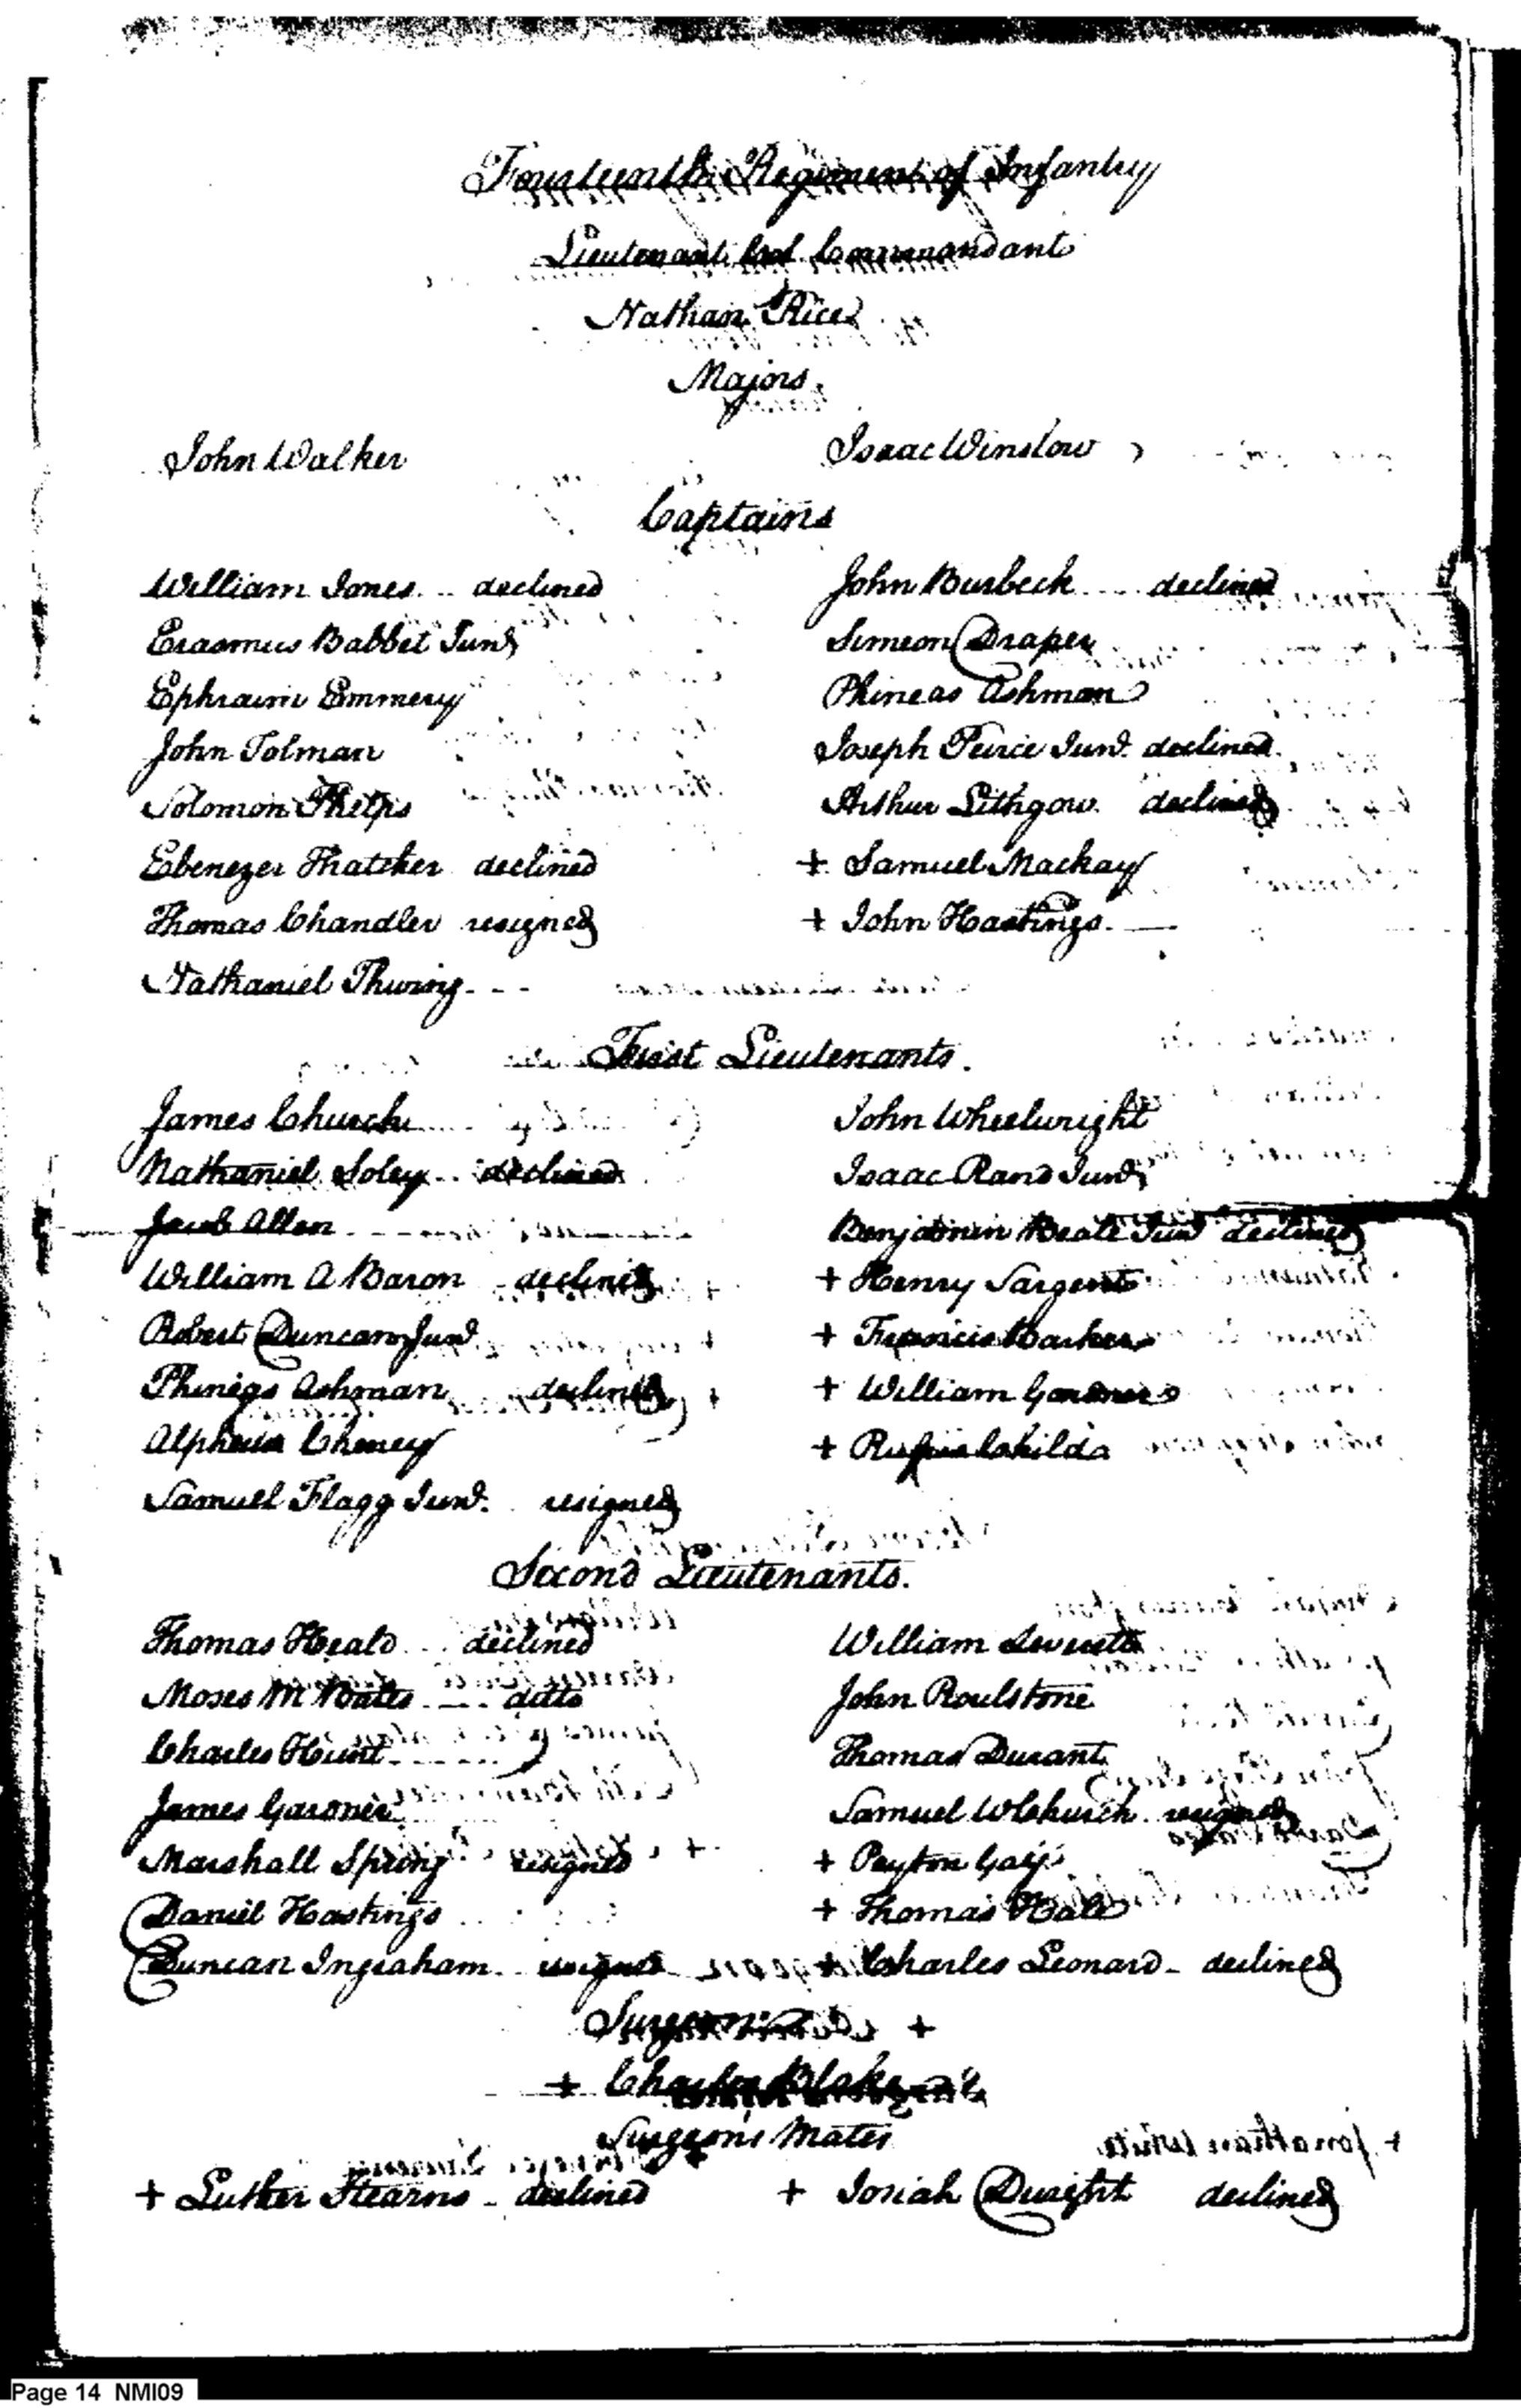 Fourteenth Regiment of Infantry
Lieutenant Col Commandant
Nathan Rice
Majors.
John Walker Isaac Winslow
Captains
William Jones declined John Burbeck declined
Erasmus Babbet Junr Simeon Draper
Ephraim Emmery Phineas Ashman
John Tolman Joseph Peirce Junr. declined
Solomon Phelps Arthur Lithgow declined
Ebenezer Thatcher declined + Samuel Mackay
Thomas Chandler resigned + John Hastings
Nathaniel Thwing
First Lieutenants.
James Church John Wheelwright
Nathaniel Soley declined Isaac Rand Junr
Jacob Allen Benjamin Beale Junr declined
William A Baron declined + Henry Sargent
Robert Duncan Junr + Francis Barker
Phineas Ashman declined + William Gardner
Alpheus Cheney + Rufus Childs
Samuel Flagg Junr. resigned
Second Lieutenants.
Thomas Heald declined William Leverett
Moses M Bates ditto John Roulstone
Charles Hunt Thomas Durant
James Gardner Samuel W Church resigned
Marshall Spring resigned + Peyton Gay
Daniel Hastings + Thomas Hale
Duncan Ingraham resigned + Charles Leonard declined
Surgeon
+ Charles Blake
Surgeon's Mates
+ Luther Stearns declined + Josiah Dwight declined
Page 14 NMI09